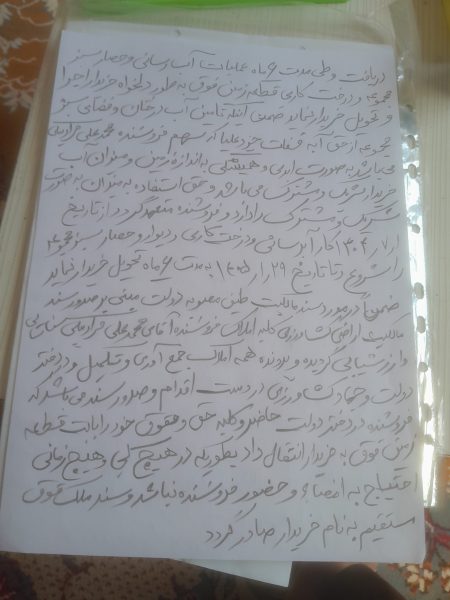 دریافت و طی مدت ۶ ماه عملیات آب رسانی و حصار سبز
مجموعه و درخت کاری قطعه زمین فوق به طور دلخواه خریدار اجرا
و تحویل خریدار نماید ضمن آنکه تامین آب درختان و فضای سبز
مجموعه از حق آبه قنات جودعلیا که سهم فروشنده محمدعلی
می باشد به صورت ابدی و همیشگی به اندازه زمین و میزان آب
خریدار شریک و مشترک می باشد و حق استفاده به میزان به صورت
شریک و مشترک را دارد و فروشنده متعهد گردد از تاریخ
۱۴۰۴/۷/۱ کار آبرسانی و درخت کاری و دیوار و حصار سبز مجموعه
را شروع و تا تاریخ ۱۴۰۵/۱/۲۹ به مدت ۶ ماه تحویل خریدار نماید
ضمناً در مورد سند مالکیت طبق مصوبه دولت مبنی بر صدور سند
مالکیت اراضی کشاورزی کلیه املاک فروشنده آقای محمدعلی
وارزشیابی گردیده و پرونده همه املاک جمع آوری و تکمیل و در دفتر
دولت و جهاد کشاورزی در دست اقدام و صدور سند می باشد که
فروشنده در دفتر دولت حاضر و کلیه حق و حقوق خود را بابت قطعه
زمین فوق به خریدار انتقال داد بطوریکه در هیچ کجا و هیچ زمانی
احتیاج به امضاء و حضور فروشنده نباشد و سند ملک فوق
مستقیم به نام خریدار صادر گردد